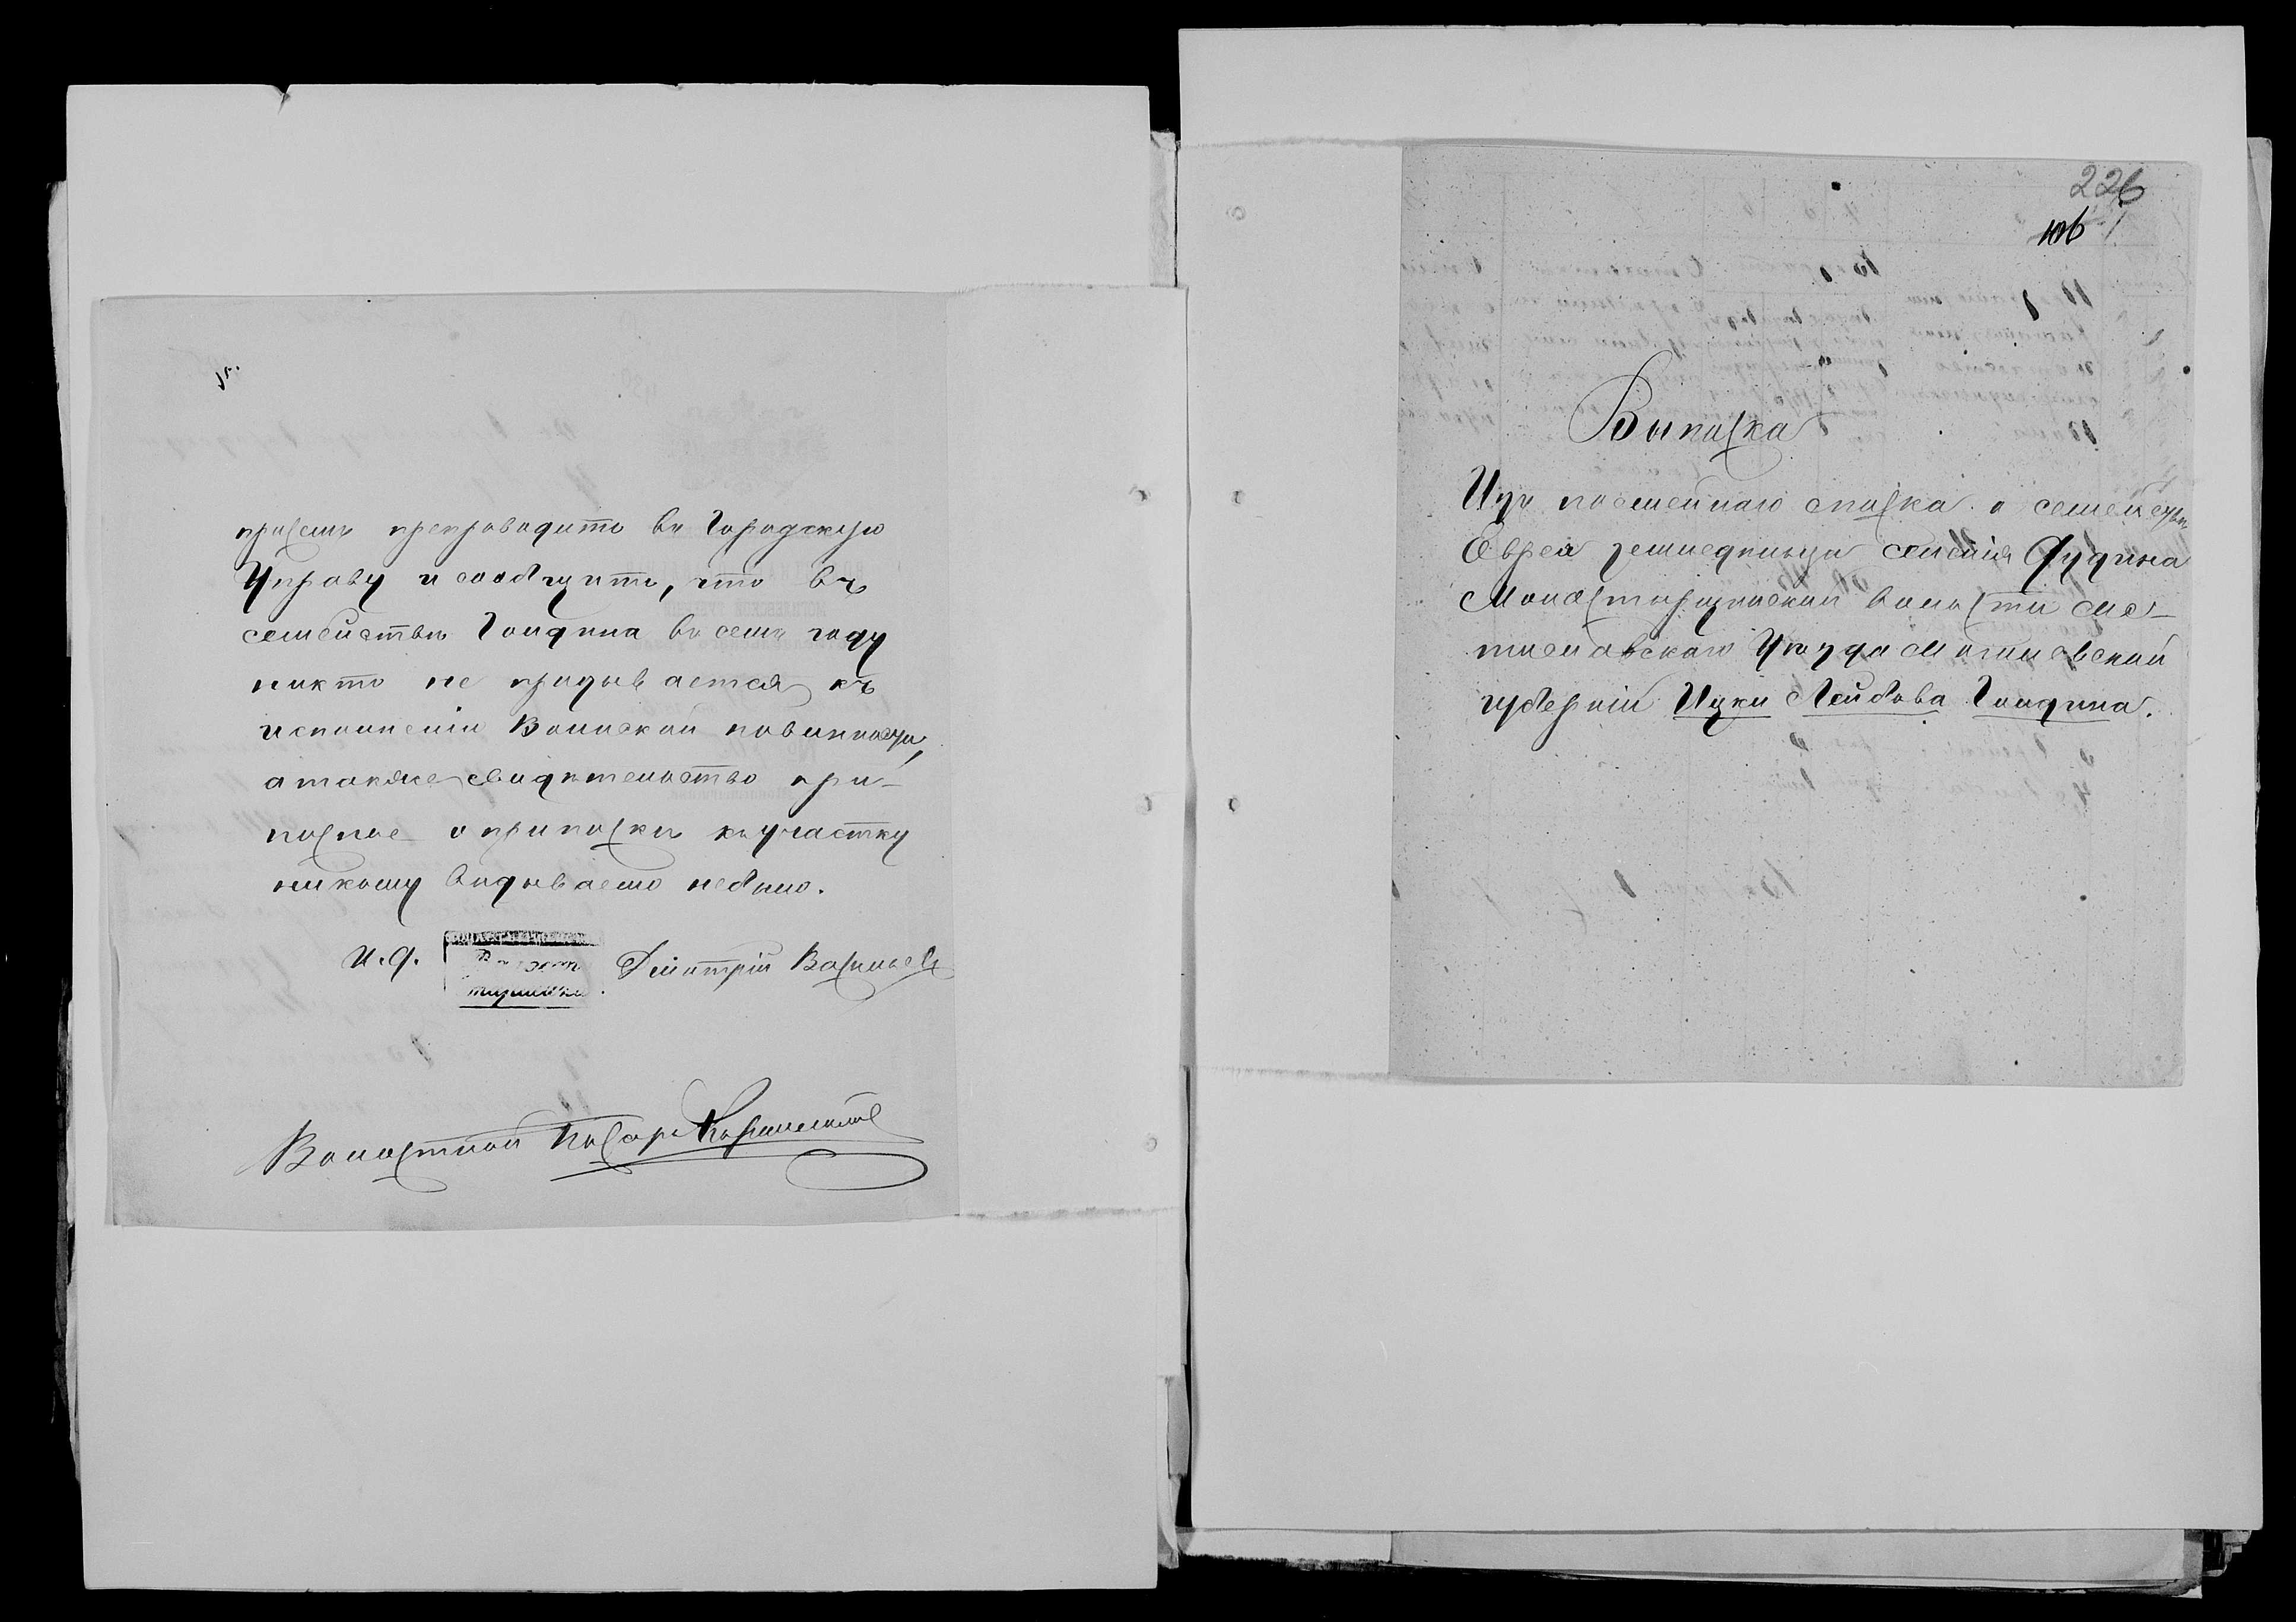 при семъ препроводить въ Городскую
Управу и сообщить, что въ
семействѣ Гондина въ семъ году
никто не призывается къ
исполненію Воинской повинности,
а также свидѣтельство при-
писное о припискѣ къ участку
никому выдываемо небыло.
И. д. Дмитрій Васильевъ
Волостной Писарь
226
106
Выписка
Изъ посемейнаго списка о семействѣ
Еврея земледѣльца селенія Дудина
Монастырщинской волости Мс-
тиславскаго Уѣзда Могилевской
губерніи Ицки Лейбова Гондина.